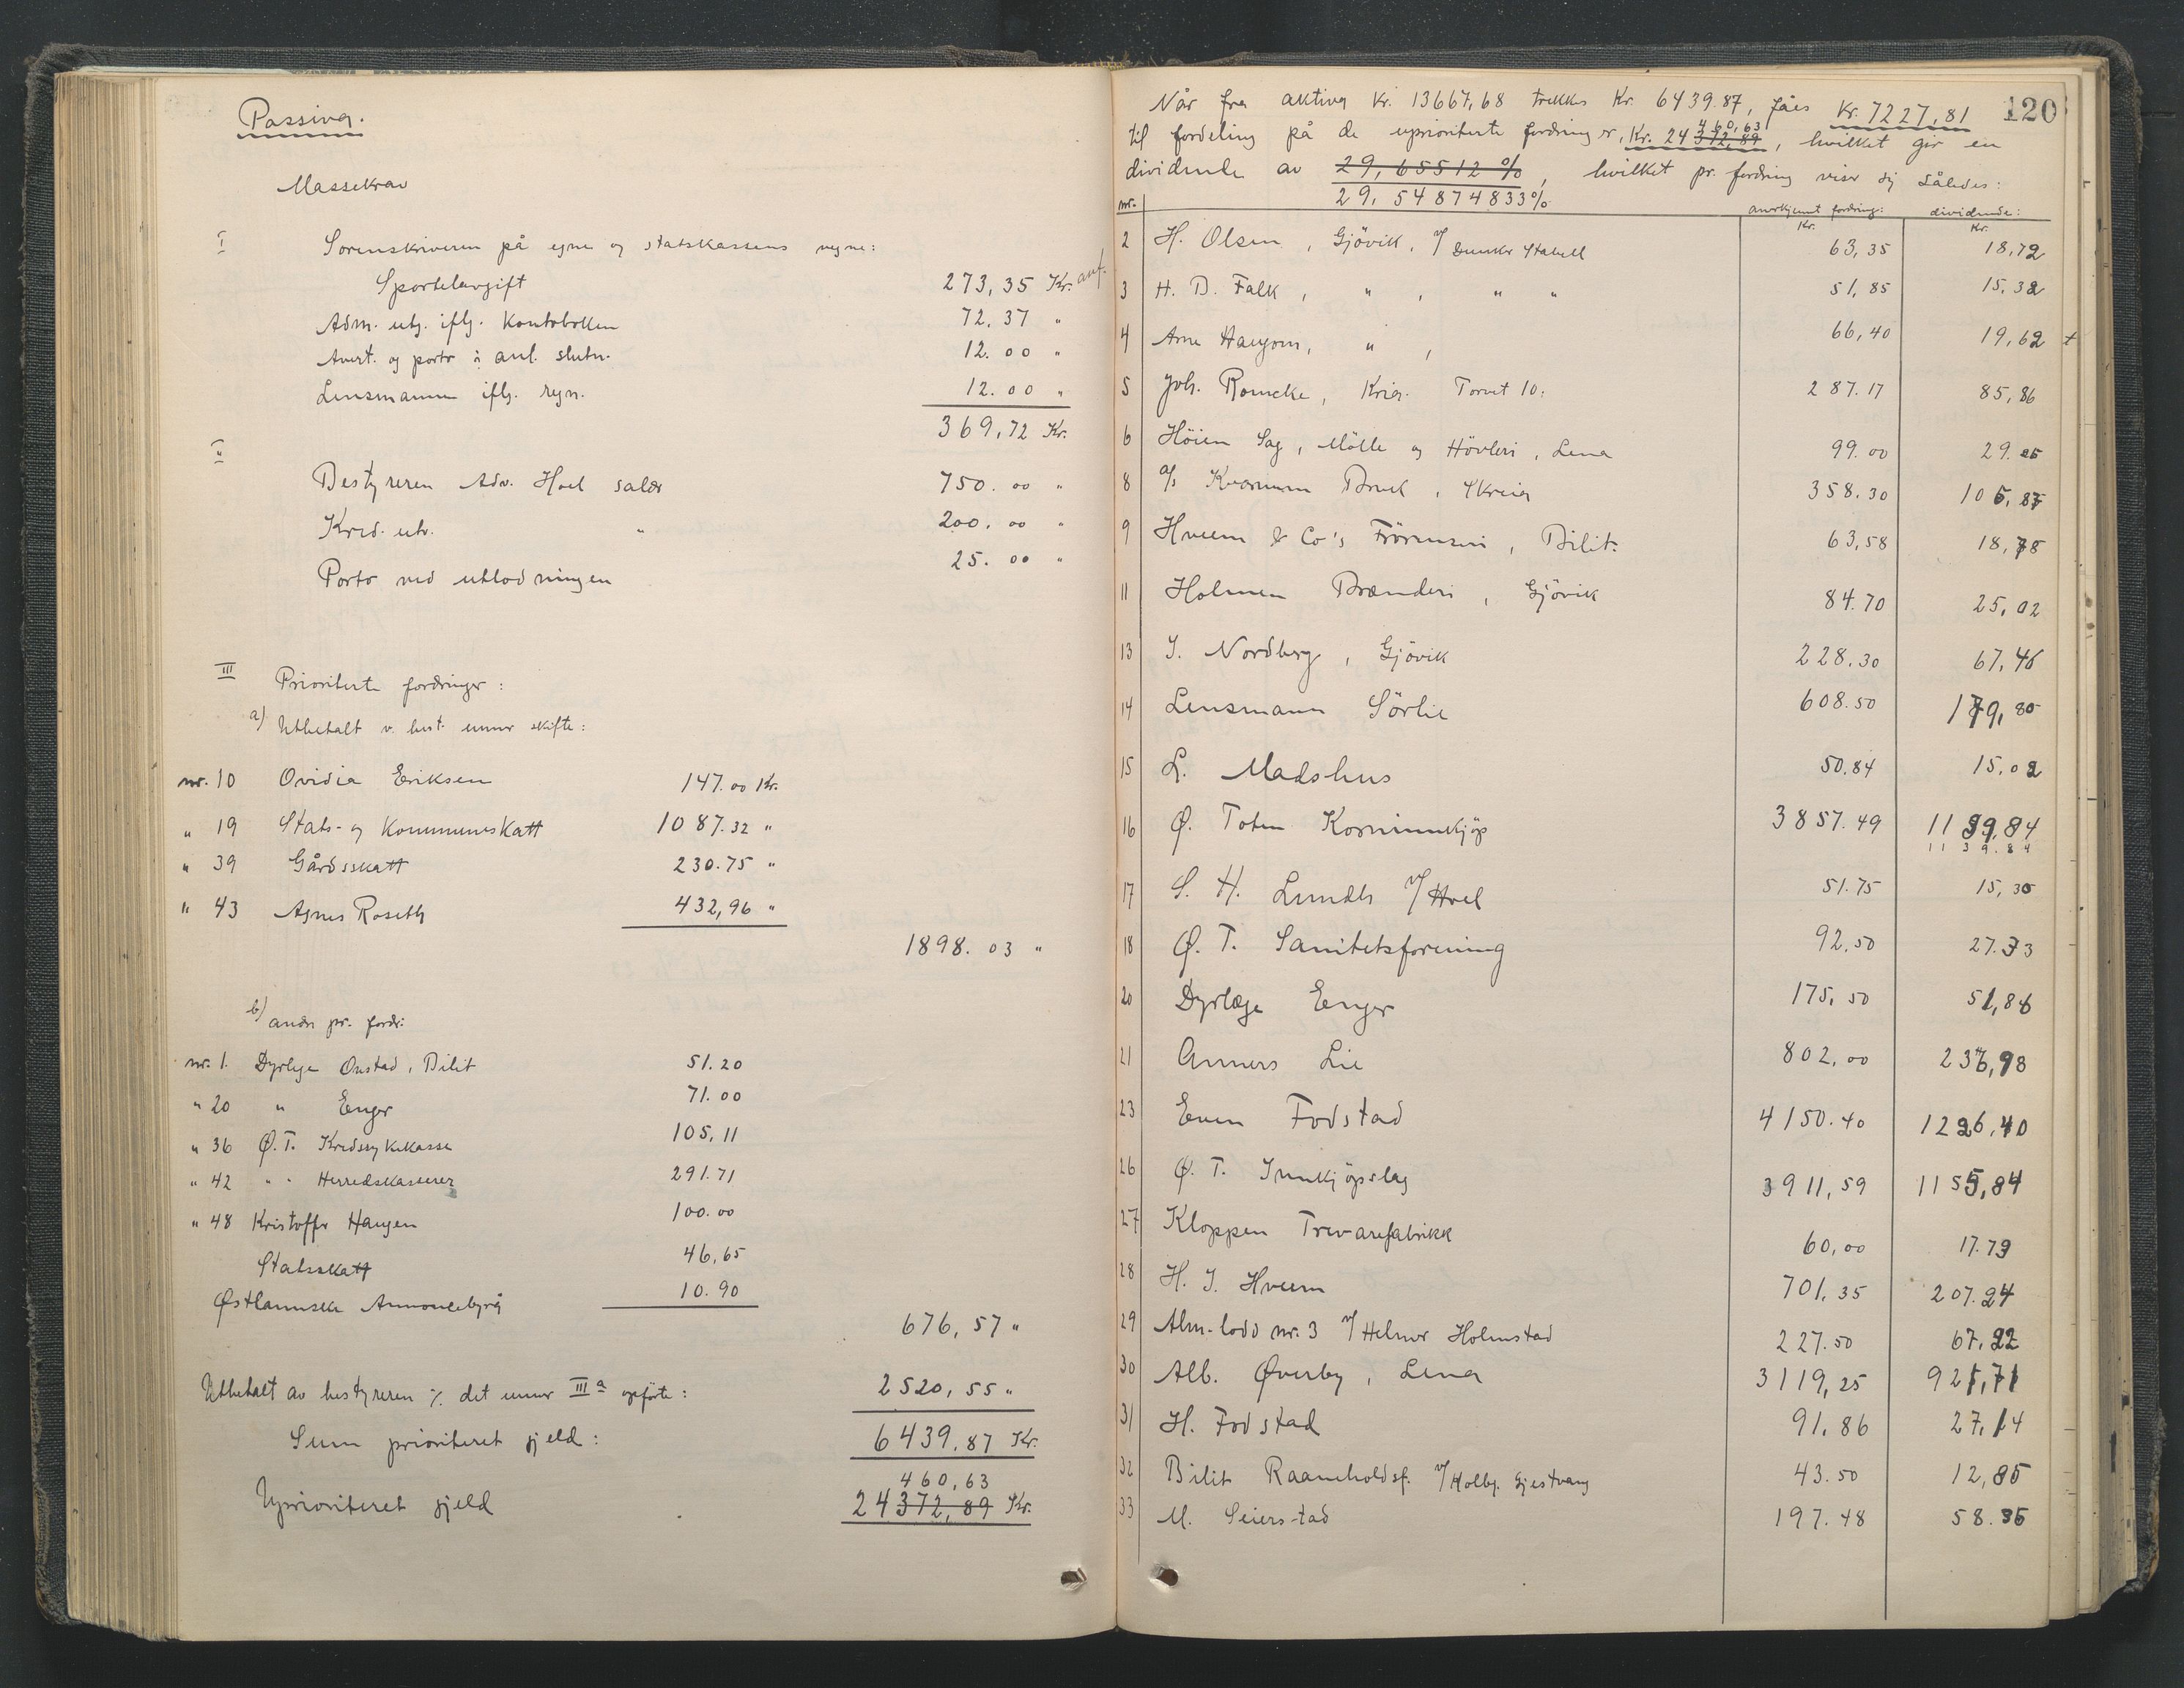 Passiva.
Massekrav
I
Sorenskriveren på egne og statskassens vegne:
Sportelavgift 273,35 Kr. anf.
Adm. utg. iflg. Kontoboken 72.37 "
Avert. og porto i anl. slutn. 12.00 "
Lensmannen iflg. regn. 12.00 "
369,72 Kr.
II
Bestyreren Adv. Hoel salær 750.00 "
Kred. utv. " 200.00 "
Porto ved utlodningen 25.00 "
III Prioriterte fordringer:
a) Utbetalt v. best. under skifte:
nr. 10 Ovidia Eriksen 147.00 Kr.
" 19 Stats- og Kommuneskatt 1087.32 "
" 39 Gårdsskatt 230.75 "
" 43 Agnes Roseth 432,96 "
1898.03 "
b) andre pr. fordr:
nr. 1. Dyrlege Onstad, Bilit 51.20
" 20 " Enger 71.00
" 36 Ø.T. Kredssykekasse 105,11
" 42 " " Herredskasserer 291.71
" 48 Kristoffer Haugen 100.00
Statsskatt 46,65
Østlandske Annoncebyrå 10.90
676,57 "
Utbetalt av bestyreren ÷ det under III a opförte: 2520,55 "
Sum prioritert gjeld: 6439,87 Kr.
460,63
Uprioriteret gjeld 24372,89 Kr.
120
Når fra aktiva Kr. 13667,68 trekkes Kr. 6439.87, fåes Kr. 7227,81
460,63
til fordeling på de uprioriterte fordringer, Kr. 24372,89, hvilket gir en
dividende av 29,65512 %, hvilket pr. fordring viser sig således:
29,54874833%
nr. anerkjent fordring: dividende:
Kr. Kr.
2 H. Olsen, Gjövik, v/ Dunker Stabell 63,35 18,72
3 H. B. Falk, " , " " 51,85 15,32
4 Arne Haugom, " , 66,40 19,62 +
5 Joh. Romcke, Kria. Torvet 10. 287.17 85,86
6 Höien Sag, Mölle og Hövleri, Lena 99.00 29.25
8 a/s Kvarnum Bruk, Skreia 358.30 105,87
9 Hveem & Co's Frörenseri, Bilit. 63,58 18,78
11 Holmen Brænderi, Gjövik 84.70 25,02
13 J. Nordberg, Gjövik 228.30 67,46
14 Lensmann Sörlie 608.50 179,80
15 L. Madshus 50.84 15.02
16 Ø. Toten Korninnkjöp 3857.49 1139,84
1139.84
17 S. H. Lundh v/ Hoel 51.75 15,30
18 Ø. T. Sanitetsforening 92,50 27.33
20 Dyrlæge Enger 175,50 51,86
21 Anders Lie 802,00 236,98
23 Even Fodstad 4150.40 1226,40
26 Ø. T. Innkjöpslag 3911,59 1155,84
27 Kloppen Trevarefabrikk 60,00 17.73
28 H. J. Hveem 701,35 207.24
29 Alm.-lodd nr. 3 v/ Helmer Holmstad 227.50 67.22
30 Alb. Øverby, Lena 3119,25 921,71
31 H. Fodstad 91.86 27,14
32 Bilit Raameholdsf. v/ Kolbj. Gjestvang 43.50 12,85
33 M. Seierstad 197.48 58.35